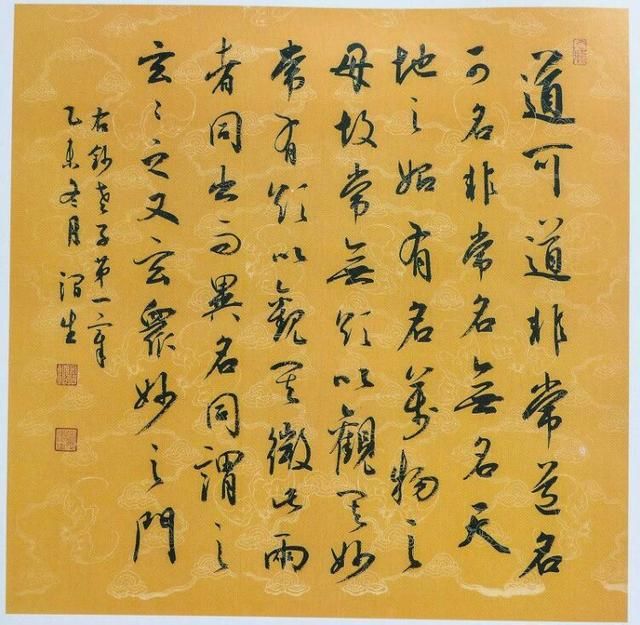 道可道非常道名
可名非常名無名天
地之始有名萬物之
母故常無欲以觀其妙
常有欲以觀其徼此兩
者同出而異名同謂之
玄〻之又玄眾妙之門
右錄老子第一章
乙未冬月 涓生